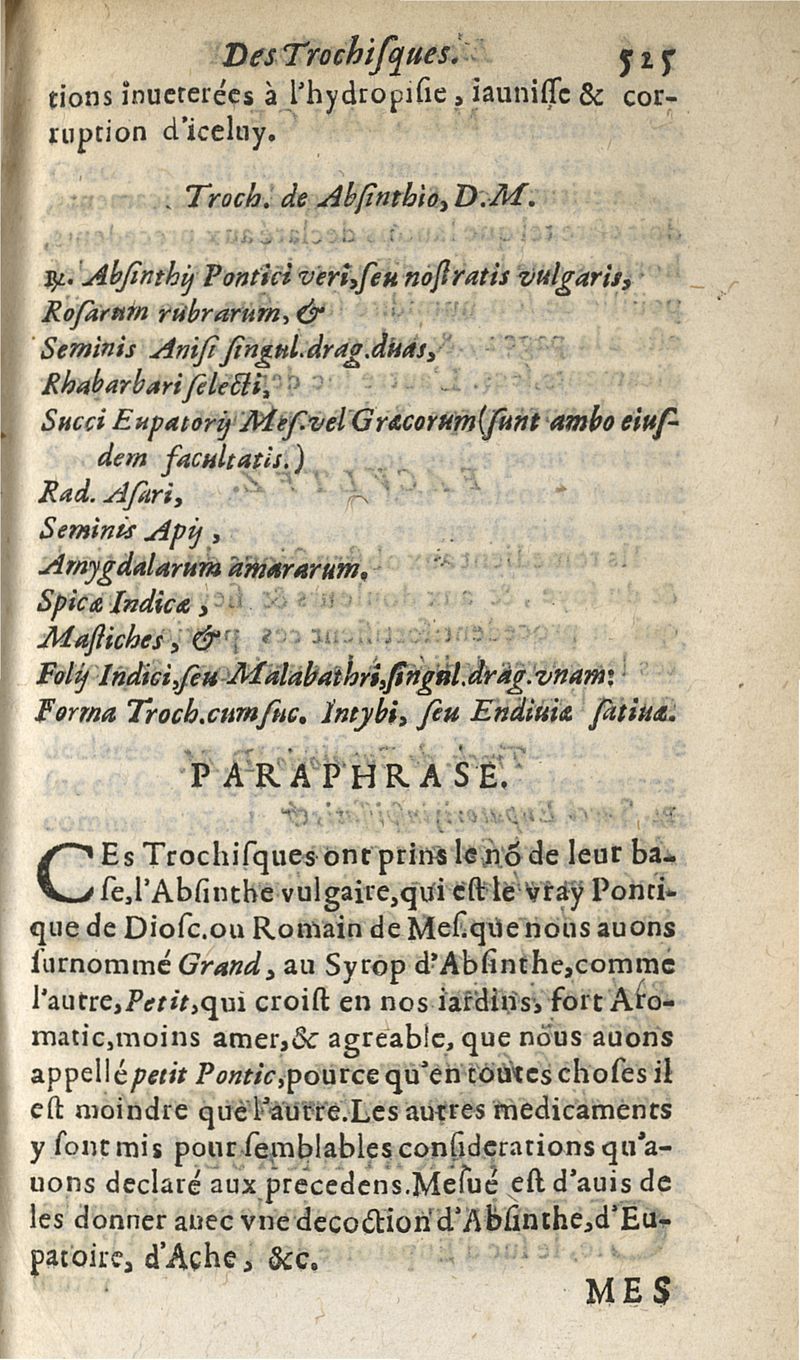 Des Trochiſques. 525
tions inueterées à l'hydropiſie, iauniſſe & cor-
ruption d'iceluy.
Troch. de Abſinthio, D. M.
℞. Abſinthij Pontici veri, ſeu noſtratis vulgaris,
Roſarum rubrarum, &
Seminis Aniſi ſingul. drag. duas,
Rhabarbari ſelecti,
Succi Eupatorij Meſ. vel Græcorum (ſunt ambo eiuſ-
dem facultatis.)
Rad. Aſari,
Seminis Apij,
Amygdalarum amararum,
Spicæ Indicæ,
Maſtiches, &
Folij Indici, ſeu Malabathri, ſingul. drag. vnam:
Forma Troch. cum ſuc. Intybi, ſeu Endiuiæ ſatiuæ.
PARAPHRASE.
CEs Trochiſques ont prins le nõ de leur ba-
ſe, l'Abſinthe vulgaire, qui eſt le vray Ponti-
que de Dioſc. ou Romain de Meſ. que nous auons
ſurnommé Grand, au Syrop d'Abſinthe, comme
l'autre, Petit, qui croiſt en nos iardins, fort Aro-
matic, moins amer, & agreable, que nous auons
appellé petit Pontic, pource qu'en toutes choſes il
eſt moindre que l'autre. Les autres medicaments
y ſont mis pour ſemblables conſiderations qu'a-
uons declaré aux precedens. Meſué eſt d'auis de
les donner auec vne decoction d'Abſinthe, d'Eu-
patoire, d'Ache, &c.
MES